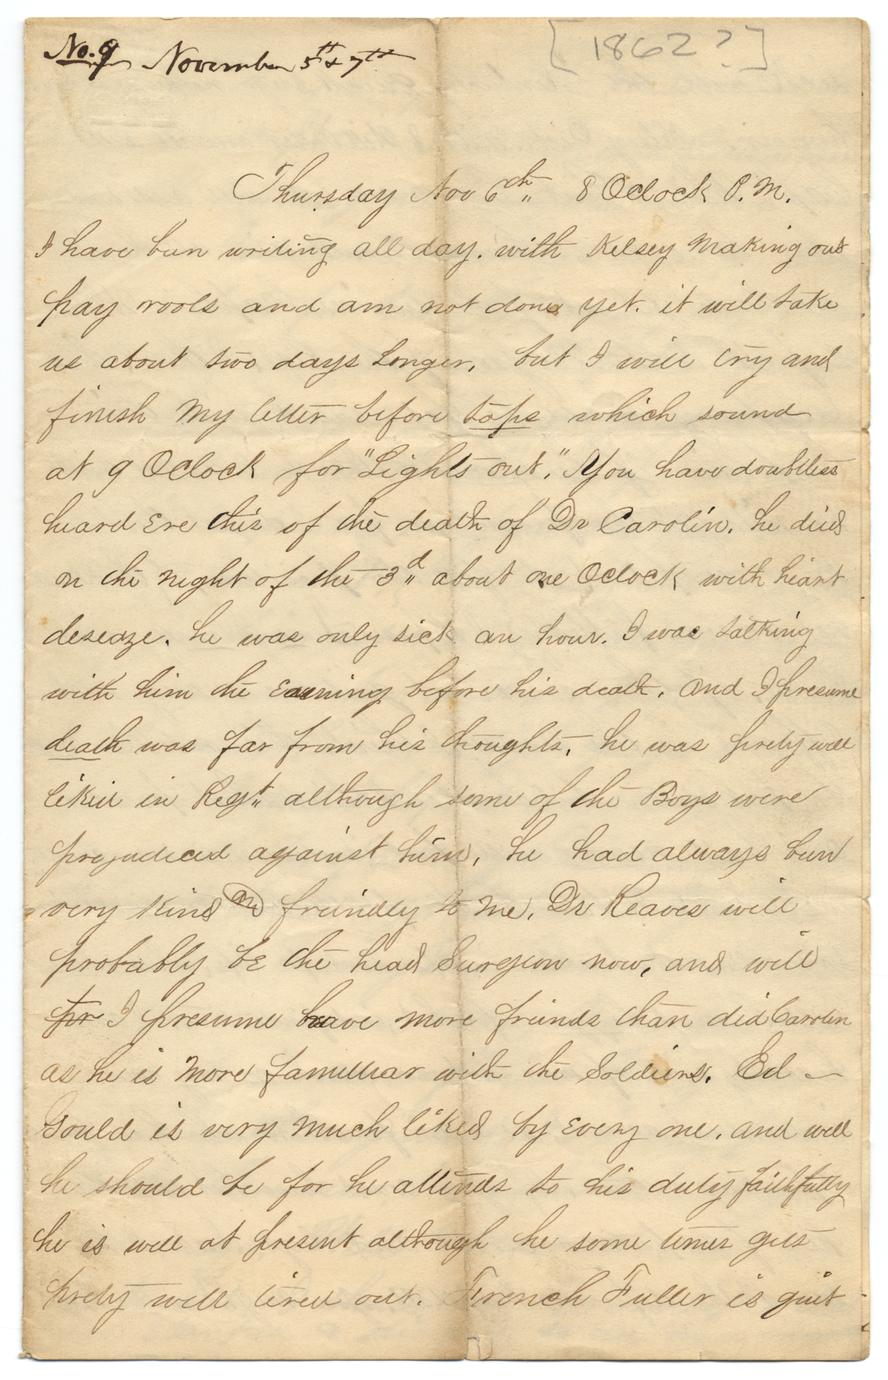 No. 9 November 5th & 7th
[1862?]
Thursday Nov 6th" 8 Oclock P.M.
I have bun writing all day. with Kelsey making out
pay rools and am not done yet. it will take
us about two days longer, but I will try and
finish my letter before taps which sound
at 9 Oclock for "Lights out". You have doubtless
heard Ere this of the death of Dr Carolin. he died
on the night of the 3d" about one Oclock with heart
deseaze. he was only sick an hour. I was talking
with him the Eavning before his death. and I presume
death was far from his thoughts, he was prety well
liked in Regt" although some of the Boys were
prejudiced against him, he had always bun
very kind and freindly to me. Dr Reaves will
probably be the head Surgeon now, and will
pr I presume have more friends than did Carolin
as he is more familliar with the Soldiers. Ed
Gould is very much liked by Every one. and well
he should be for he attends to his duty faithfully
he is well at present although he some times gets
prety well tired out. French Fuller is quit